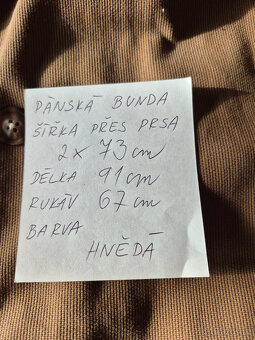 PÁNSKÁ BUNDA
ŠÍŘKA PŘES PRSA
2x 73 cm
DÉLKA 91 cm
RUKÁV 67 cm
BARVA
HNĚDÁ